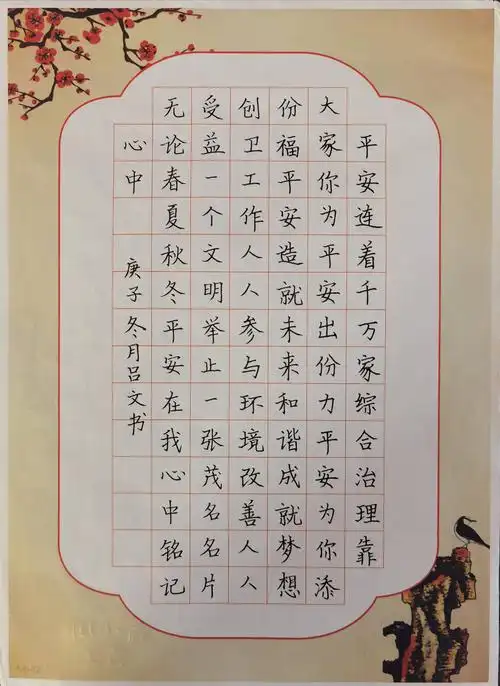 平安连着千万家综合治理靠
大家你为平安出份力平安为你添
份福平安造就未来和谐成就梦想
创卫工作人人参与环境改善人人
受益一个文明举止一张茂名名片
无论春夏秋冬平安在我心中铭记
心中
庚子冬月吕文书